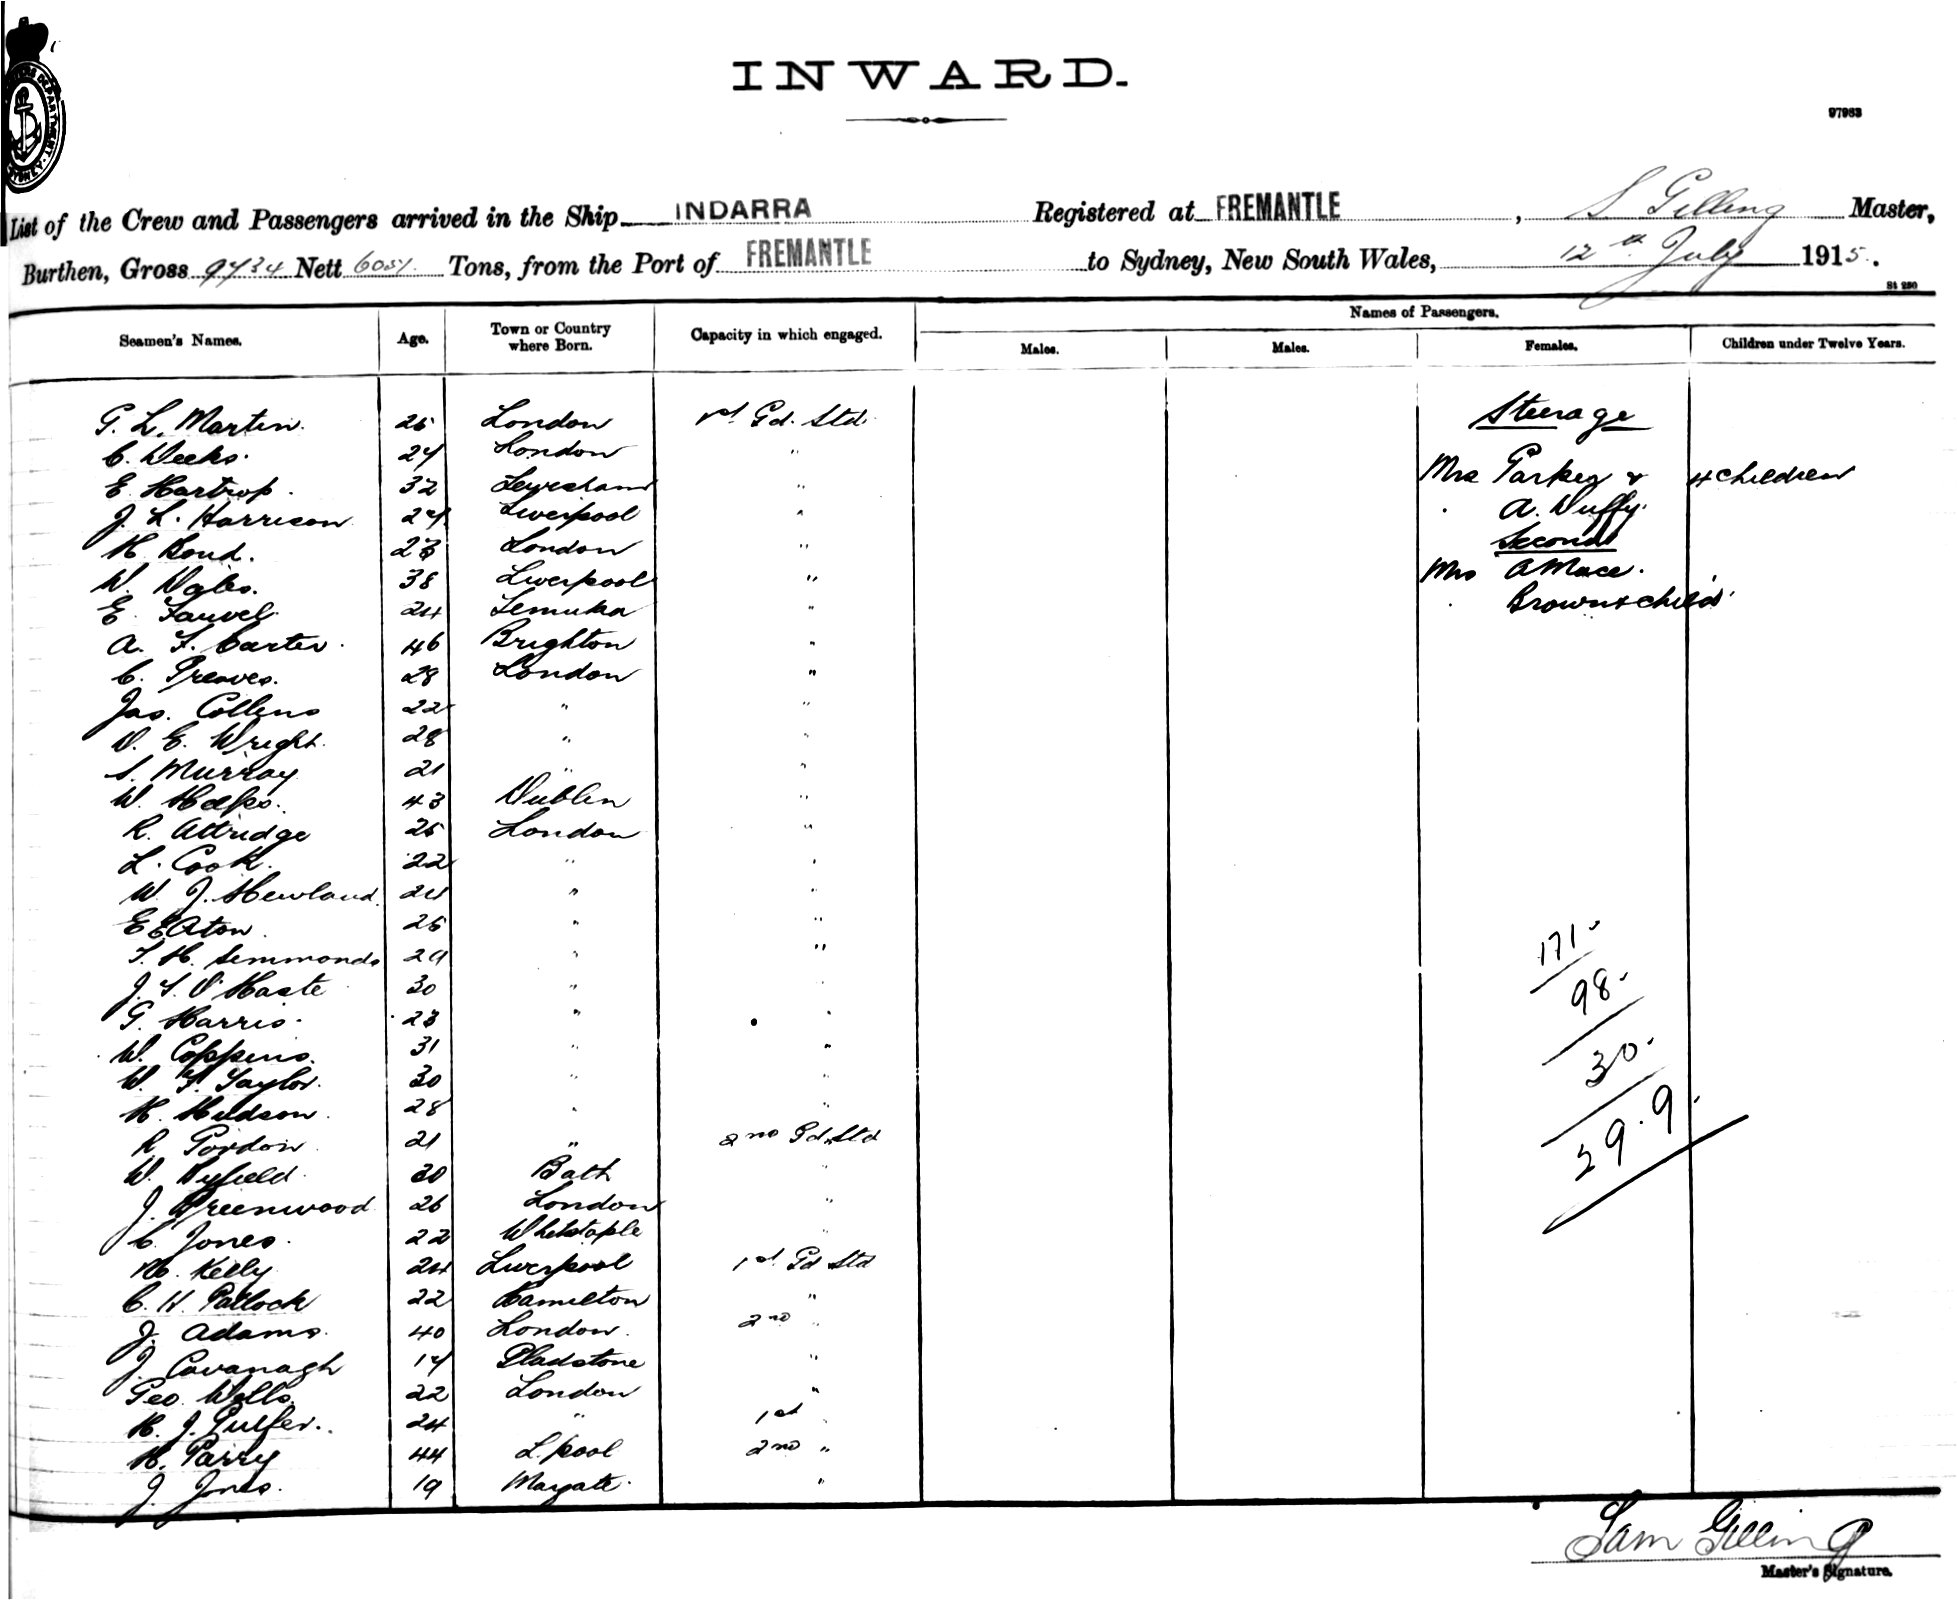 INWARD.
97963
List of the Crew and Passengers arrived in the Ship INDARRA Registered at FREMANTLE, S Gilling Master,
Burthen, Gross 9734 Nett Tons, from the Port of FREMANTLE to Sydney, New South Wales, 12th July 1915.
St 250
Names of Passengers.
Seamen's Names. Age. Town or Country where Born. Capacity in which engaged. Males. Males. Females. Children under Twelve Years.
G. L. Martin. 25 London 1st Gd. Std. Steerage
C. Weeks. 27 London "
E. Hartrop. 32 Lewisham " Mrs Parkey & 4 children
J. L. Harrison 27 Liverpool " " A. Duffy.
H. Bond. 23 London " Second
W. Wales. 38 Liverpool " Mrs A Mace.
E. Fauvel 24 Temuka " " Brown & child
A. F. Carter. 46 Brighton "
C. Greaves. 28 London "
Jas. Collens 22 " "
D. E. Wright. 28 " "
S. Murray 21 " "
W. Heeps. 43 Dublin "
R. Attridge 25 London "
L. Cook. 22 " "
W. J. Hewland. 24 " "
E E Aton. 25 " "
T. H. Simmonds 29 " "
J. T. D. Haste 30 " "
G. Harris. 23 " "
W. Coppens. 31 " "
W. F. Taylor. 30 " "
H. Hudson. 28 " "
R. Gordon. 21 " 2nd Gd. Std
W. Byfield. 30 Bath "
J. Greenwood 26 London "
C. Jones. 22 Whitstaple "
M. Kelly 24 Liverpool 1st Gd Std
C. H. Patlock 22 Hamilton "
J. Adams. 40 London. 2nd "
J. Cavanagh 17 Gladstone "
Geo. Wells. 22 London "
H. J. Pulfer. 24 " 1st "
H. Parry 44 L.pool 2nd "
J. Jones. 19 Margate. "
171.
98.
30.
299.
Sam Gilling
Master's Signature.